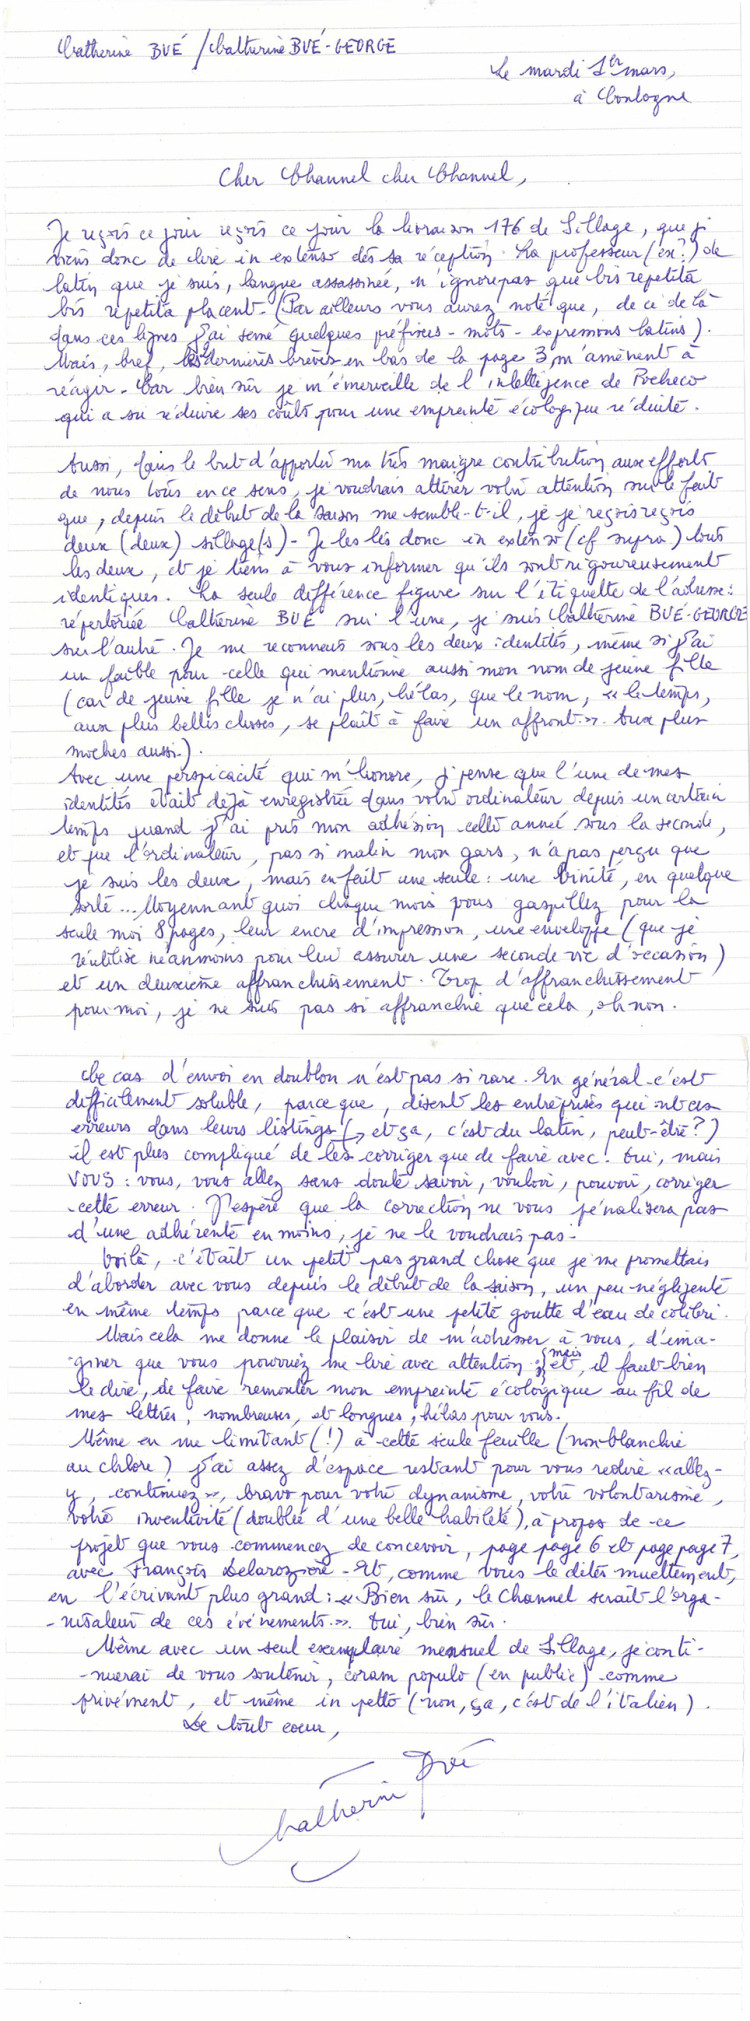 Catherine BUÉ / Catherine BUÉ-GEORGE
Le mardi 1er mars,
à Coulogne
Cher Channel cher Channel,
Je reçois ce jour reçois ce jour la livraison 176 de Sillage, que je
viens donc de lire in extenso dès sa réception. La professeur (ex?) de
latin que je suis, langue assassinée, n'ignore pas que bis repetita
bis repetita placent. (Par ailleurs vous aurez noté que, de ci de là
dans ces lignes j'ai semé quelques préfixes - mots - expressions latins).
Mais, bref, les dernières brèves en bas de la page 3, m'amènent à
réagir. Car bien sûr je m'émerveille de l'intelligence de Pocheco
qui a su réduire ses coûts pour une empreinte écologique réduite.
Aussi, dans le but d'apporter ma très maigre contribution aux efforts
de nous tous en ce sens, je voudrais attirer votre attention sur le fait
que, depuis le début de la saison me semble-t-il, je je reçois reçois
deux (deux) sillage(s) - Je les lis donc in extenso (cf supra) tous
les deux, et je tiens à vous informer qu'ils sont rigoureusement
identiques. La seule différence figure sur l'étiquette de l'adresse :
répertoriée Catherine BUÉ sur l'une, je suis Catherine BUÉ-GEORGE
sur l'autre. Je me reconnais sous les deux identités, même si j'ai
un faible pour celle qui mentionne aussi mon nom de jeune fille
(car de jeune fille je n'ai plus, hélas, que le nom, « le temps,
aux plus belles choses, se plaît à faire un affront ». Aux plus
moches aussi.).
Avec une perspicacité qui m'honore, je pense que l'une de mes
identités était déjà enregistrée dans votre ordinateur depuis un certain
temps quand j'ai pris mon adhésion cette année sous la seconde,
et que l'ordinateur, pas si malin mon gars, n'a pas perçu que
je suis les deux, mais en fait une seule : une binité, en quelque
sorte... Moyennant quoi chaque mois vous gaspillez pour la
seule moi 8 pages, leur encre d'impression, une enveloppe (que je
réutilise néanmoins pour lui assurer une seconde vie d'occasion)
et un deuxième affranchissement. Trop d'affranchissement
pour moi, je ne suis pas si affranchie que cela, oh non.
Ce cas d'envoi en doublon n'est pas si rare. En général c'est
difficilement soluble, parce que, disent les entreprises qui ont ces
erreurs dans leurs listings (→ et ça, c'est du latin, peut-être ?)
il est plus compliqué de les corriger que de faire avec. Oui, mais
VOUS : vous, vous allez sans doute savoir, vouloir, pouvoir, corriger
cette erreur. J'espère que la correction ne vous pénalisera pas
d'une adhérente en moins, je ne le voudrais pas.
Voilà, c'était un petit pas grand chose que je me promettais
d'aborder avec vous depuis le début de la saison, un peu négligente
en même temps parce que c'est une petite goutte d'eau de colibri.
Mais cela me donne le plaisir de m'adresser à vous, d'ima-
-giner que vous pourriez me lire avec attention ; mais et, il faut bien
le dire, de faire remonter mon empreinte écologique au fil de
mes lettres, nombreuses, et longues, hélas pour vous.
Même en me limitant (!) à cette seule feuille (non blanchie
au chlore) j'ai assez d'espace restant pour vous redire « allez-
y, continuez », bravo pour votre dynamisme, votre volontarisme,
votre inventivité (doublée d'une belle habileté), à propos de ce
projet que vous commencez de concevoir, page page 6 et page page 7,
avec François Delarozière - Et, comme vous le dites muettement,
en l'écrivant plus grand : « Bien sûr, le Channel serait l'orga-
-nisateur de ces événements. ». Oui, bien sûr.
Même avec un seul exemplaire mensuel de Sillage, je conti-
-nuerai de vous soutenir, coram populo (en public) comme
privément, et même in petto (non, ça, c'est de l'italien).
De tout coeur,
Catherine Bué